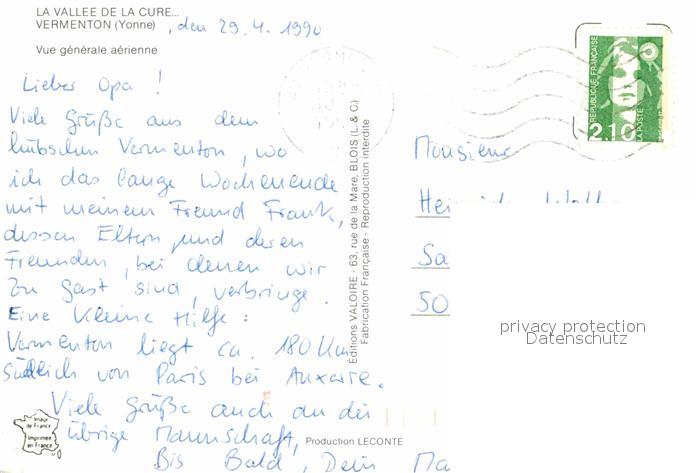 LA VALLEE DE LA CURE...
VERMENTON (Yonne) , den 29.4.1990
Vue générale aérienne
Lieber Opa !
Viele Grüße aus dem
hübschen Vermenton, wo
ich das lange Wochenende
mit meinem Freund Frank,
dessen Eltern und deren
Freunden, bei denen wir
zu Gast sind, verbringe.
Eine kleine Hilfe :
Vermenton liegt ca. 180 km
südlich von Paris bei Auxerre.
Viele Grüße auch an die
übrige Mannschaft,
Bis Bald, Dein Ma
Image de France
Imprimée en France
Production LECONTE
Éditions VALOIRE - 63, rue de la Mare, BLOIS (L. & C)
Fabrication Française - Reproduction interdite
REPUBLIQUE FRANÇAISE
2,10
LA POSTE
Monsieur
Hei
Sa
50
privacy protection
Datenschutz